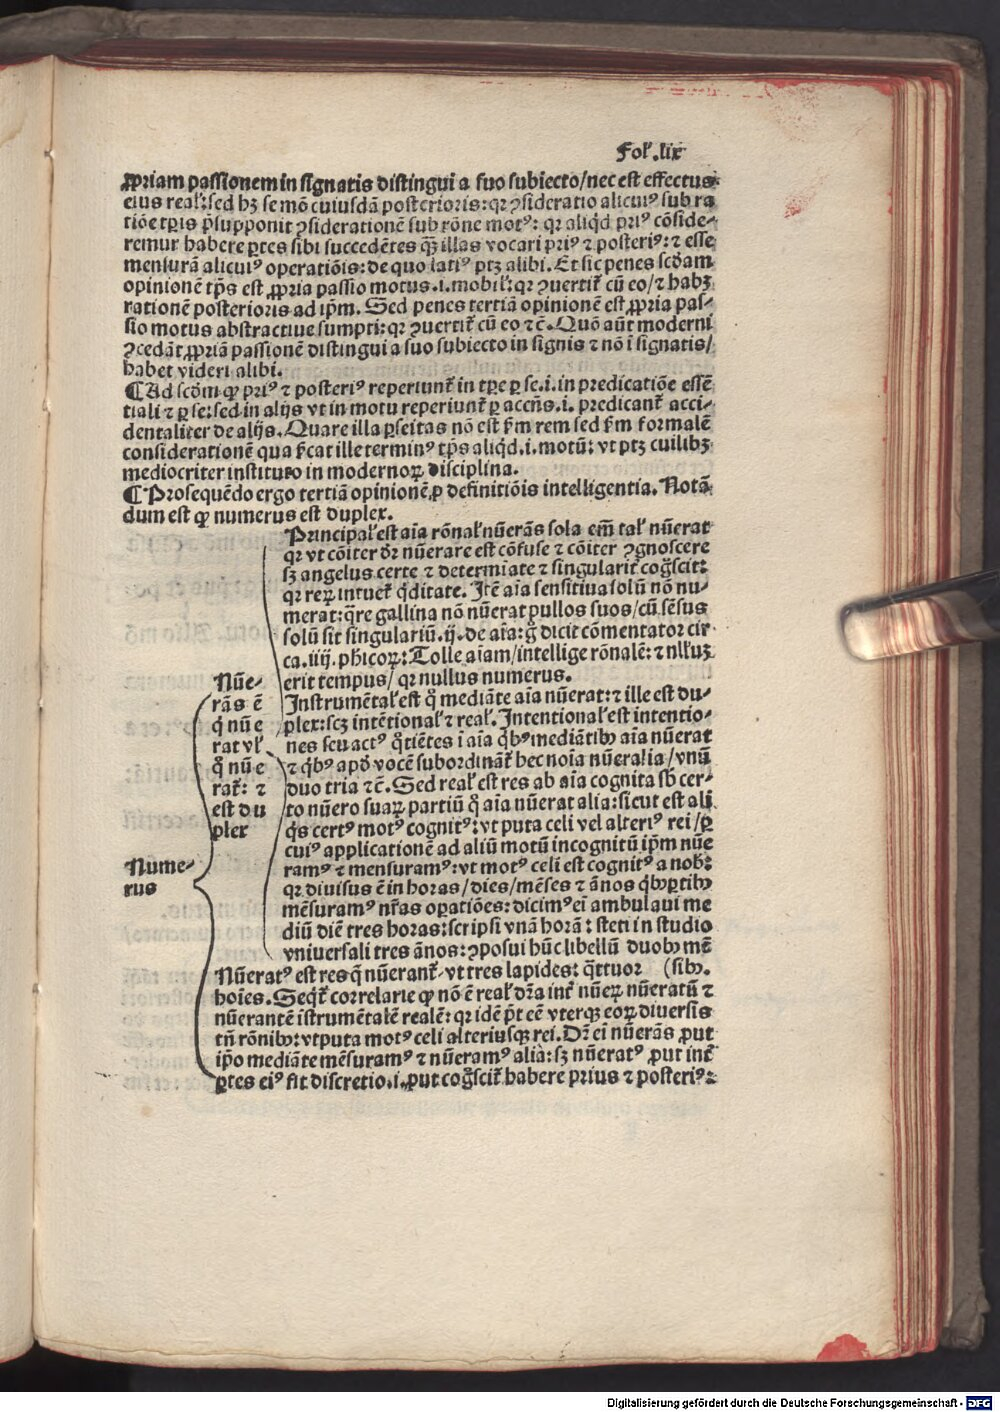 Fol᷒.lix
ꝓpriam passionem in signatis distingui a suo subiecto/nec est effectus
eius real᷒: sed hꝫ se mō cuiusdā posterioris: qꝛ ꝯsideratio alicuiꝰ sub ra
tiōe tꝑis p̄supponit ꝯsiderationē sub rōne motꝰ: qꝛ aliqd̄ priꝰ cōside-
remur habere ꝑtes sibi succedētes qꝫ̄ illas vocari priꝰ ⁊ posteriꝰ: ⁊ esse
mensurā alicuiꝰ operatiōis: de quo latiꝰ ptꝫ alibi. Et sic penes scd̄am
opinionē tp̄s est ꝓpria passio motus .i. mobil᷒: qꝛ ꝯuertit᷑ cū eo/⁊ habꝫ
rationē posterioris ad ip̄m. Sed penes tertiā opinionē est ꝓpria pas-
sio motus abstractiue sumpti: qꝛ ꝯuertit᷑ cū eo ⁊ c̄. Quō aūt moderni
ꝯcedāt ꝓpriā passionē distingui a suo subiecto in signis ⁊ nō ī signatis/
habet videri alibi.
¶Ad scd̄m ꝙ priꝰ ⁊ posteriꝰ reperiunt᷑ in tꝑe ꝑ se .i. in predicatiōe essē
tiali ⁊ ꝑ se: sed in alijs vt in motu reperiunt᷑ ꝑ accn̄s .i. predicant᷑ acci-
dentaliter de alijs. Quare illa ꝑseitas nō est ẜm rem sed ẜm formalē
considerationē qua ẜcat ille terminꝰ tp̄s aliqd̄ .i. motū: vt ptꝫ cuilibꝫ
mediocriter instituto in modernoꝝ disciplina.
¶Prosequēdo ergo tertiā opinionē ꝓ definitiōis intelligentia. Notā
dum est ꝙ numerus est duplex.
Principal᷒ est aīa rōnal᷒ nūerās sola em̄ tal᷒ nūerat
qꝛ vt cōiter dr̄ nūerare est cōfuse ⁊ cōiter ꝯgnoscere
sꝫ angelus certe ⁊ determīate ⁊ singularit᷑ coḡscit:
qꝛ reꝝ intuet᷑ qͥditate. Itē aīa sensitiua solū nō nu-
merat: qͣre gallina nō nūerat pullos suos/cū sēsus
solū sit singulariū .ij. de aīa: g̊ dicit cōmentator cir
ca .iiij. phicoꝝ: Tolle aīam/intellige rōnalē: ⁊ nll'uꝫ
erit tempus/qꝛ nullus numerus.
Nūe-
rās ē
qͦ nū e
rat vl᷒
qͦ nū e
rat᷑: ⁊
est du
plex
Instrumētal᷒ est qͦ mediāte aīa nūerat: ⁊ ille est du-
plex: scꝫ intētional᷒ ⁊ real᷒. Intentional᷒ est intentio-
nes seu actꝰ qͦtiētes ī aīa qͥbꝰ mediātibꝰ aīa nūerat
⁊ qͥbꝰ apd̄ vocē subordinat᷑ hec noīa nūeralia/vnū
duo tria ⁊ c̄. Sed real᷒ est res ab aīa cognita sb̄ cer-
to nūero suaꝝ partiū qͦ aīa nūerat alia: sicut est ali
qͥs certꝰ motꝰ cognitꝰ: vt puta celi vel alteriꝰ rei/ꝑ
cuiꝰ applicationē ad aliū motū incognitū ip̄m nūe
ramꝰ ⁊ mensuramꝰ: vt motꝰ celi est cognitꝰ a nob᷒:
qꝛ diuisus ē in horas/dies/mēses ⁊ ānos qͥbꝰ ꝑtibꝰ
mēsuramꝰ nr̄as oꝑatiōes: dicimꝰ eī ambulaui me
diū diē tres horas: scripsi vnā horā: steti in studio
vniuersali tres ānos: ꝯposui hūc libellū duobꝰ mē
(sibꝰ.
Nume-
rus
Nūeratꝰ est res qͣ nūerant᷑, vt tres lapides: qͣttuor
hoīes. Seqͥt᷑ correlarie ꝙ nō ē real᷒ dr̄a int᷑ nūeꝝ nūeratū ⁊
nūerantē īstrumētalē realē: qꝛ idē p̄t eē vterqꝫ eoꝝ diuersis
tn̄ rōnibꝰ: vt puta motꝰ celi alteriusqꝫ rei. Dr̄ eī nūerās ꝓut
ip̄o mediāte mēsuramꝰ ⁊ nūeramꝰ alia: sꝫ nūeratꝰ ꝓut int᷑
ꝑtes eiꝰ fit discretio .i. ꝓut coḡscit᷑ habere prius ⁊ posteriꝰ:
Digitalisierung gefördert durch die Deutsche Forschungsgemeinschaft - DFG